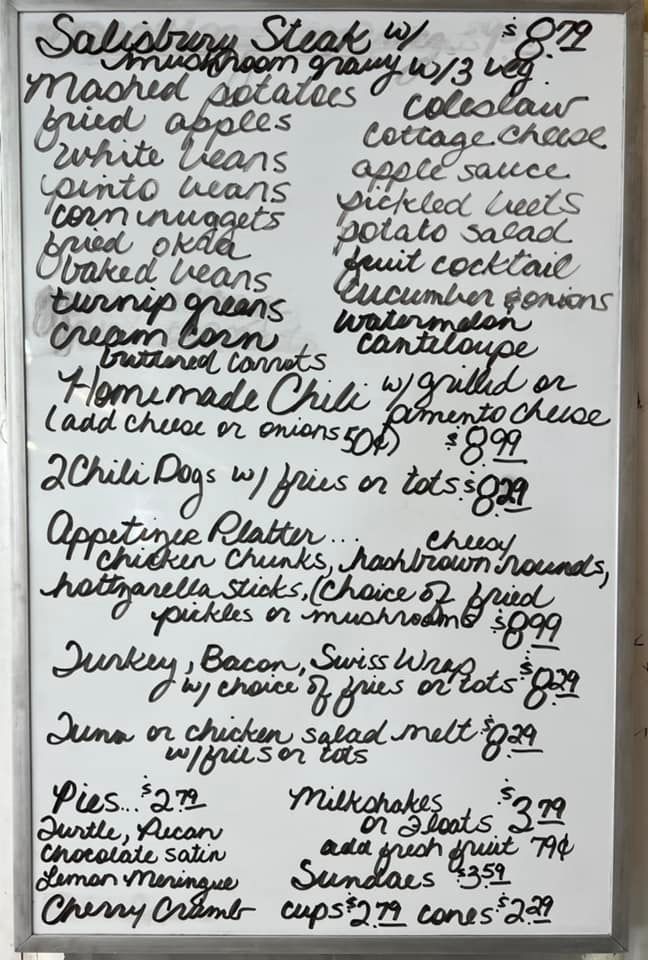 Salisbury Steak w/ $8.79
mushroom gravy w/3 veg.
Mashed potatoes coleslaw
fried apples cottage cheese
white beans apple sauce
pinto beans pickled beets
corn nuggets potato salad
fried okra fruit cocktail
baked beans cucumber & onions
turnip greens watermelon
cream corn cantiloupe
buttered carrots
Homemade Chili w/ grilled or
pimento cheese
(add cheese or onions 50¢) $8.99
2 Chili Dogs w/ fries or tots $8.29
Appetizer Platter... cheesy
chicken chunks, hashbrown rounds,
hottzarella sticks, (choice of fried
pickles or mushrooms $8.99
Turkey, Bacon, Swiss Wrap $8.29
w/ choice of fries or tots
Tuna or chicken salad melt $8.29
w/fries or tots
Pies... $2.79
Turtle, Pecan
Chocolate satin
Lemon Meringue
Cherry Crumb
Milkshakes $3.79
or Floats
add fresh fruit 79¢
Sundaes $3.59
cups $2.79 cones $2.29